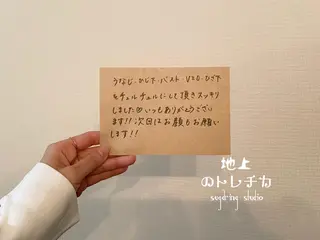 うなじ、わじ下、バスト、VIO、ひざ下
をチュルチュルにして頂きスッキリ
しました♡いつもありがとうござい
ます!!次回はお顔もお願い
します!!
地上
のトレチカ
sugaring studio